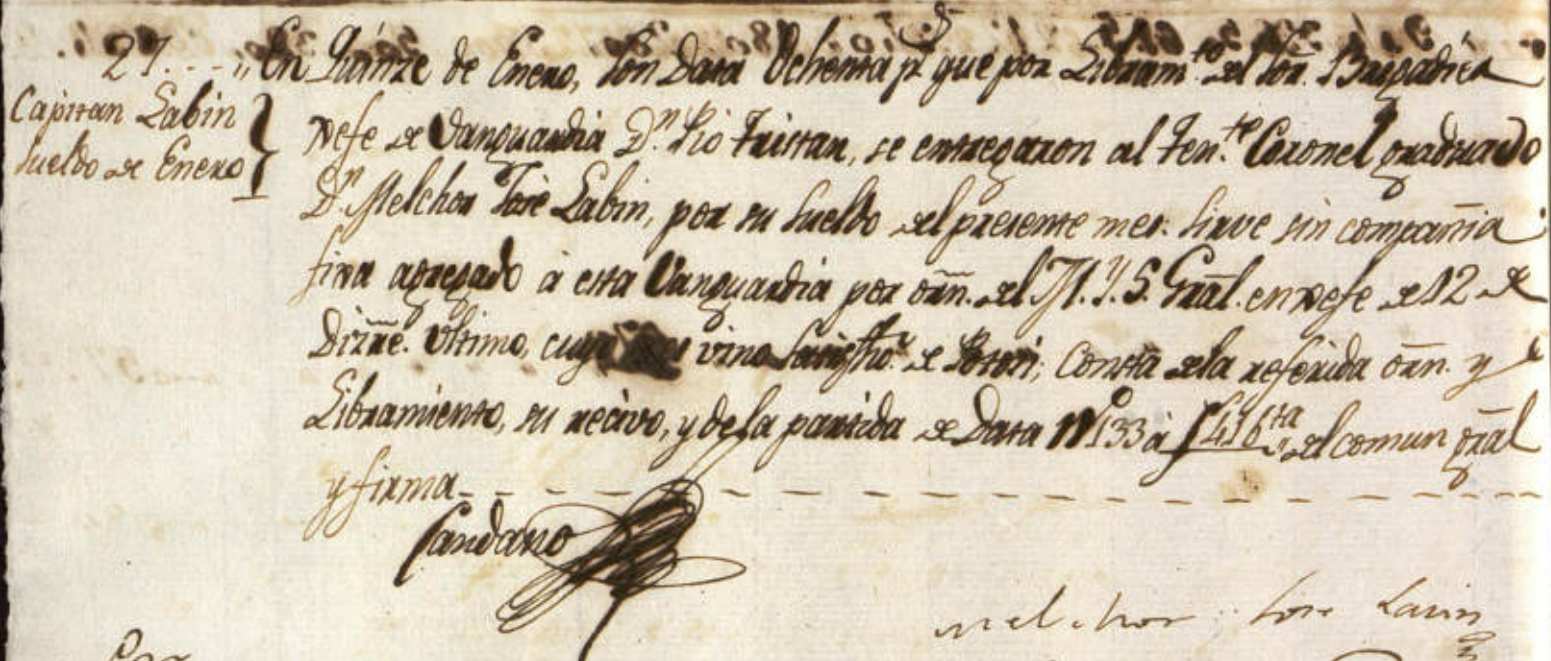 27. - - " En Quinze de Enero, son Data Ochenta p.s que por Libram.to del Sor. Brigadier
Capitan Labin
Sueldo de Enero
Xefe de Vanguardia D.n Pio Tristan, se entregaron al Ten.te Coronel graduado
D.n Melchor José Labin, por su Sueldo del presente mes. Sirve sin compañia
fixa agregado à esta Vanguardia por orñ. del M. Y. S. Gral. en Xefe de 12 de
Dizre. Ultimo, cuyo vino de Potosi; Consta dela referida orñ. y
Libramiento, su recivo, y de la partida de Data No 133 à f 416 ta del comun gral
y firma
Candano
Melchor Jose Lavin